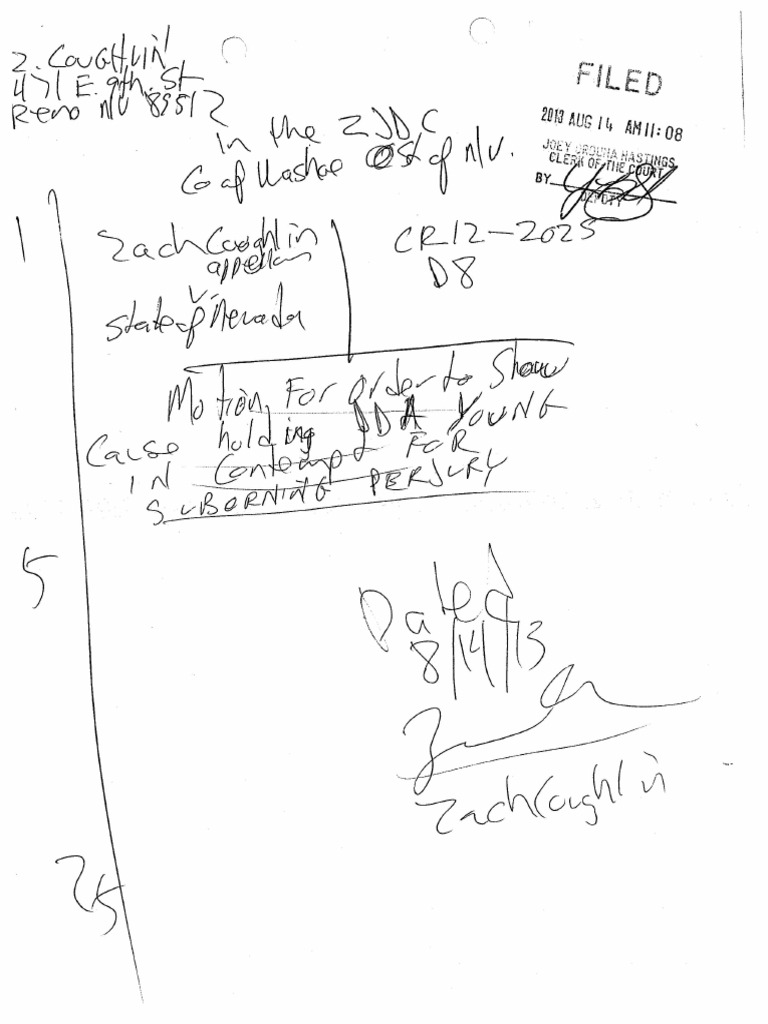 Z. Coughlin
471 E. 9th. St
Reno NV 89512
FILED
2013 AUG 14 AM 11:08
JOEY ORDUNA HASTINGS
CLERK OF THE COURT
BY
DEPUTY
in the 2JDC
Co of Washoe St of NV.
1
Zach Coughlin
appellan
v.
State of Nevada
CR12-2025
D8
Motion For order to Show
Cause holding DDA YOUNG
IN Contempt FOR
SUBORNING PERJURY
5
Dated
8/14/13
Zach Coughlin
25